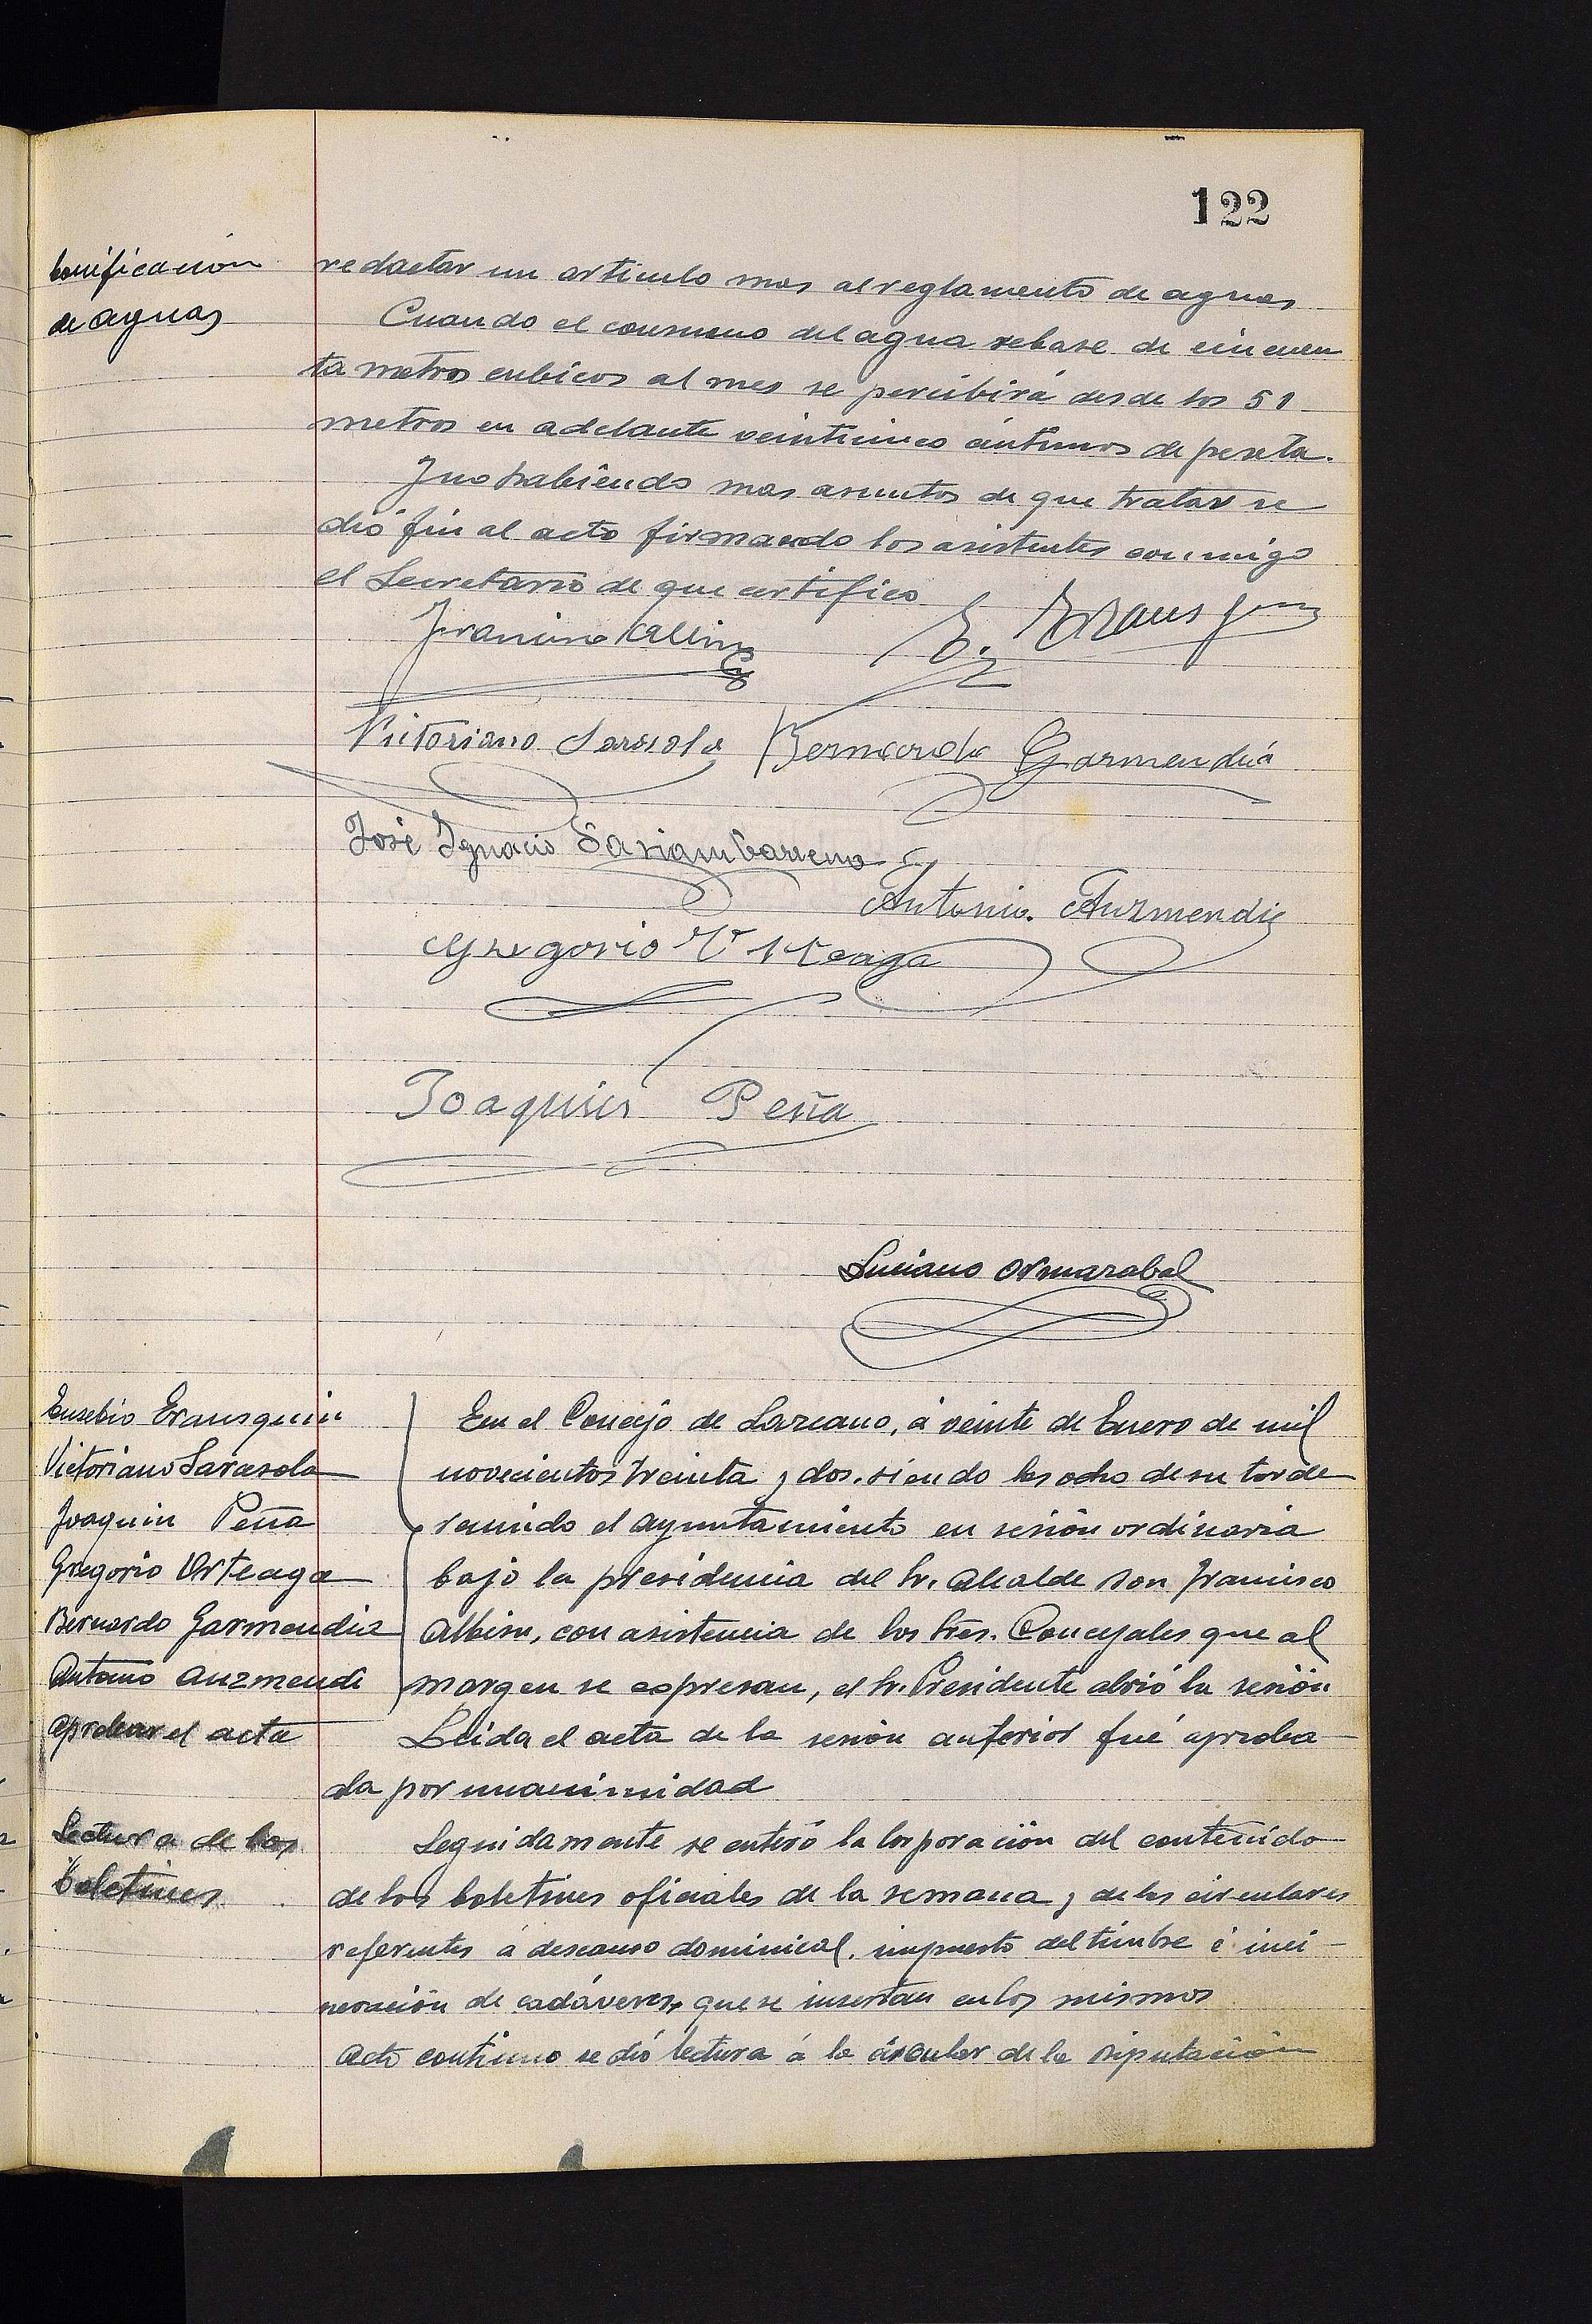 122
bonificacion
de aguas
redactar un articulo mas al reglamento de aguas
Cuando el consumo del agua rebase de cincuen
ta metros cubicos al mes se percibirá desde los 51
metros en adelante veinticinco céntimos de peseta.
Y no habiendo mas asuntos de que tratar se
dió fin al acto firmando los asistentes conmigo
el Secretario de que certifico
Francisco Albisu
E. Erausquin
Victoriano Sarasola Bernardo Garmendia
José Ignacio
Antonio Auzmendi
Gregorio Urteaga
Joaquin Peña
Luciano Ormazabal
Eusebio Erausquin
Victoriano Sarasola
Joaquin Peña
Gregorio Urteaga
Bernardo Garmendia
Antonio Auzmendi
En el Concejo de Lazcano, á veinte de Enero de mil
novecientos treinta y dos. siendo las ocho de su tarde
reunido el Ayuntamiento en sesión ordinaria
bajo la presidencia del Sr. Alcalde Don Francisco
Albisu, con asistencia de los Sres. Concejales que al
margen se expresan, el Sr. Presidente abrió la sesión
aprobar el acta
Leida el acta de la sesión anterior fué aproba-
da por unanimidad
Lectura de los
boletines
Seguidamente se enteró la Corporación del contenido
de los boletines oficiales de la semana y de las circulares
referentes á descanso dominical, impuesto del timbre é inci-
neración de cadáveres, que se insertan en los mismos
Acto continuo se dió lectura á la circular de la Diputación